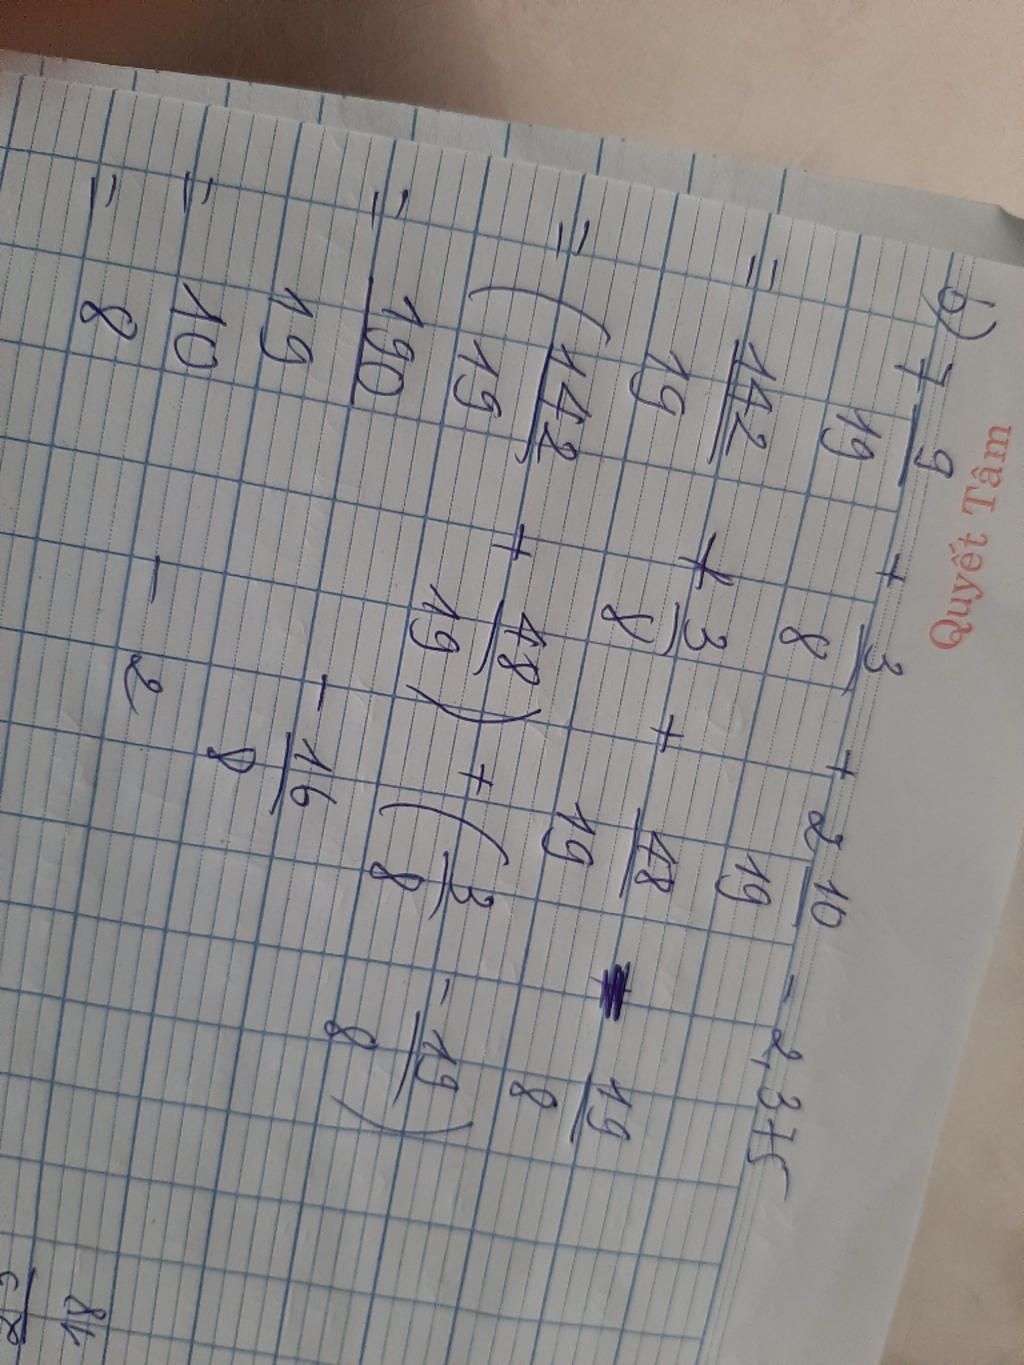 Quyết Tâm
b) 7 9/19 + 3/8 + 2 10/19 - 2,375
= 142/19 + 3/8 + 48/19 19/8
= (142/19 + 48/19) + (3/8 - 19/8)
= 190/19 - 16/8
= 10 - 2
= 8
18